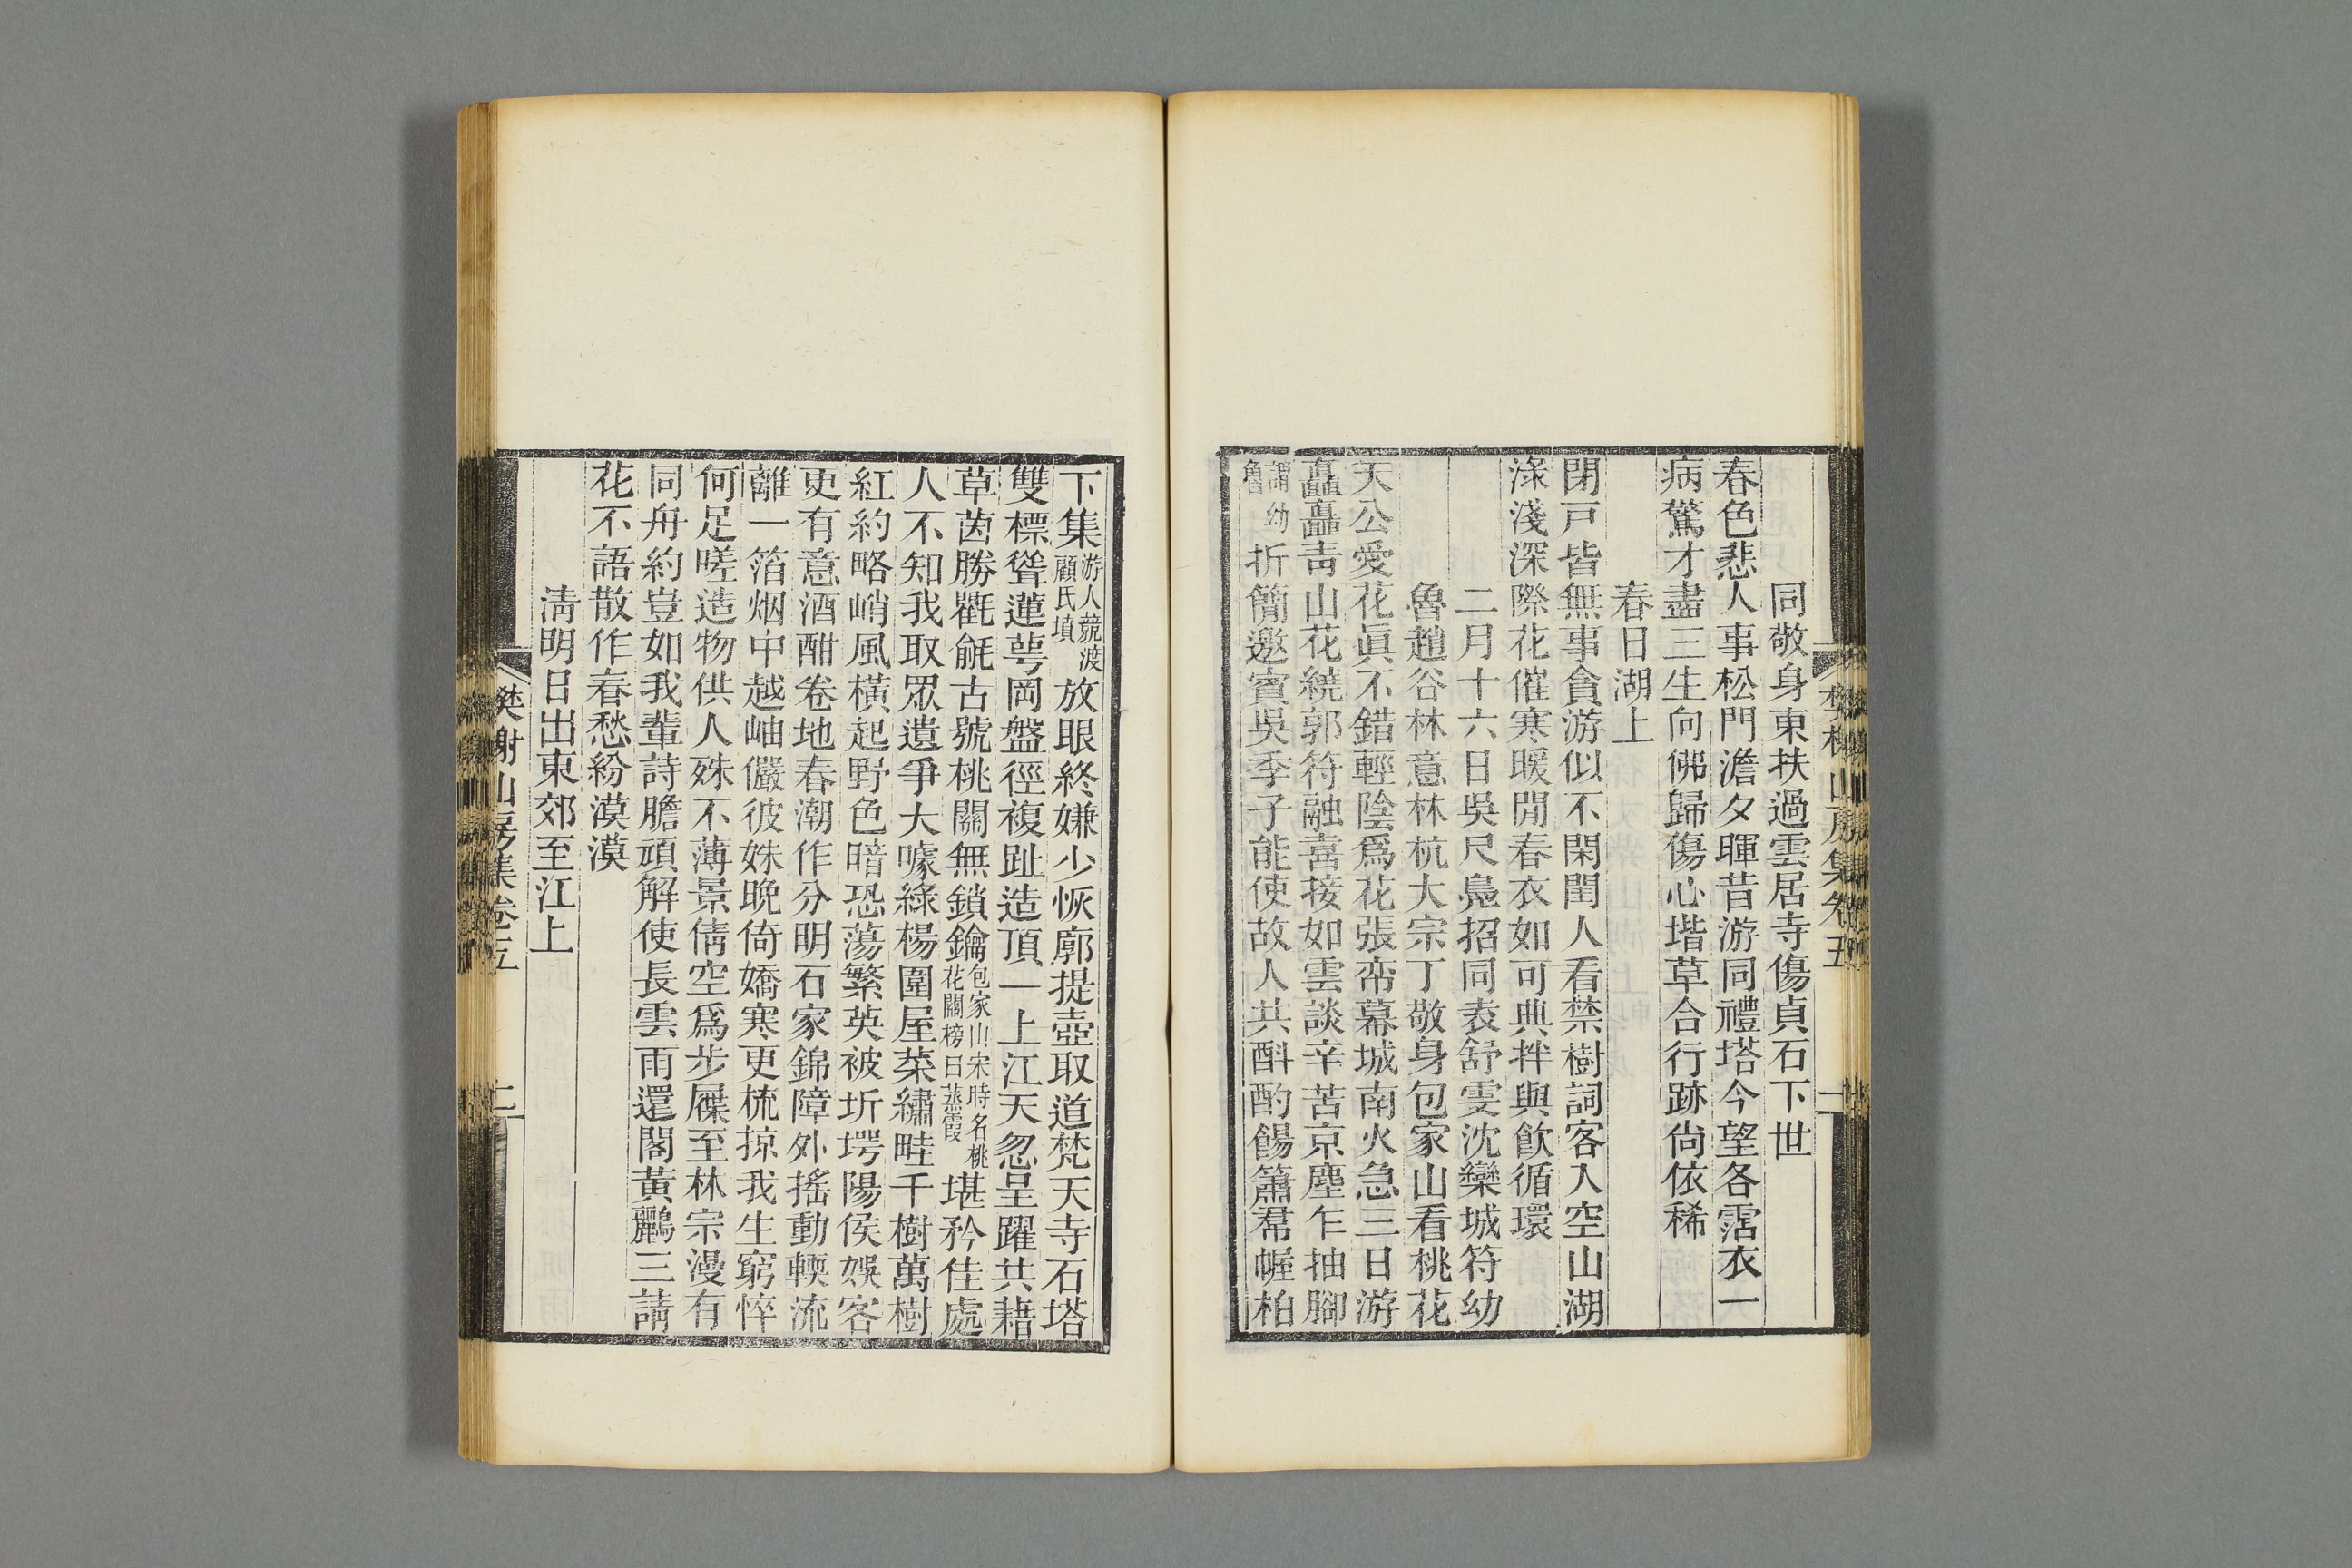 同敬身東扶過雲居寺傷貞石下世
春色悲人事松門澹夕暉昔游同禮塔今望各霑衣一
病驚才盡三生向佛歸傷心堦草合行跡尙依稀
春日湖上
閉戸皆無事貪游似不閑閨人看禁樹詞客入空山湖
淥淺深際花催寒暖閒春衣如可典拌與飮循環
二月十六日吳尺鳧招同袁舒雯沈欒城符幼
魯趙谷林意林杭大宗丁敬身包家山看桃花
天公愛花眞不錯輕陰爲花張帟幕城南火急三日游
矗矗靑山花繞郭符融喜接如雲談辛苦京塵乍抽腳
謂幼
魯
折簡邀賓吳季子能使故人共斟酌餳簫帬幄柏
下集
游人競渡
顧氏塡
放眼終嫌少恢廓提壺取道梵天寺石塔
雙標聳蓮萼岡盤徑複趾造頂一上江天忽呈躍共藉
草茵勝氍毹古號桃關無鎖鑰
包家山宋時名桃
花關榜曰蒸霞
堪矜佳處
人不知我取眾遺爭大噱綠楊圍屋菜繡畦千樹萬樹
紅約略峭風橫起野色暗恐蕩繁英被圻堮陽侯娛客
更有意酒酣卷地春潮作分明石家錦障外搖動輭流
離一箔烟中越岫儼彼姝晚倚嬌寒更梳掠我生窮悴
何足嗟造物供人殊不薄景倩空爲步屧至林宗漫有
同舟約豈如我輩詩膽頑解使長雲雨還閣黃鸝三請
花不語散作春愁紛漠漠
淸明日出東郊至江上
樊榭山房集卷五
二